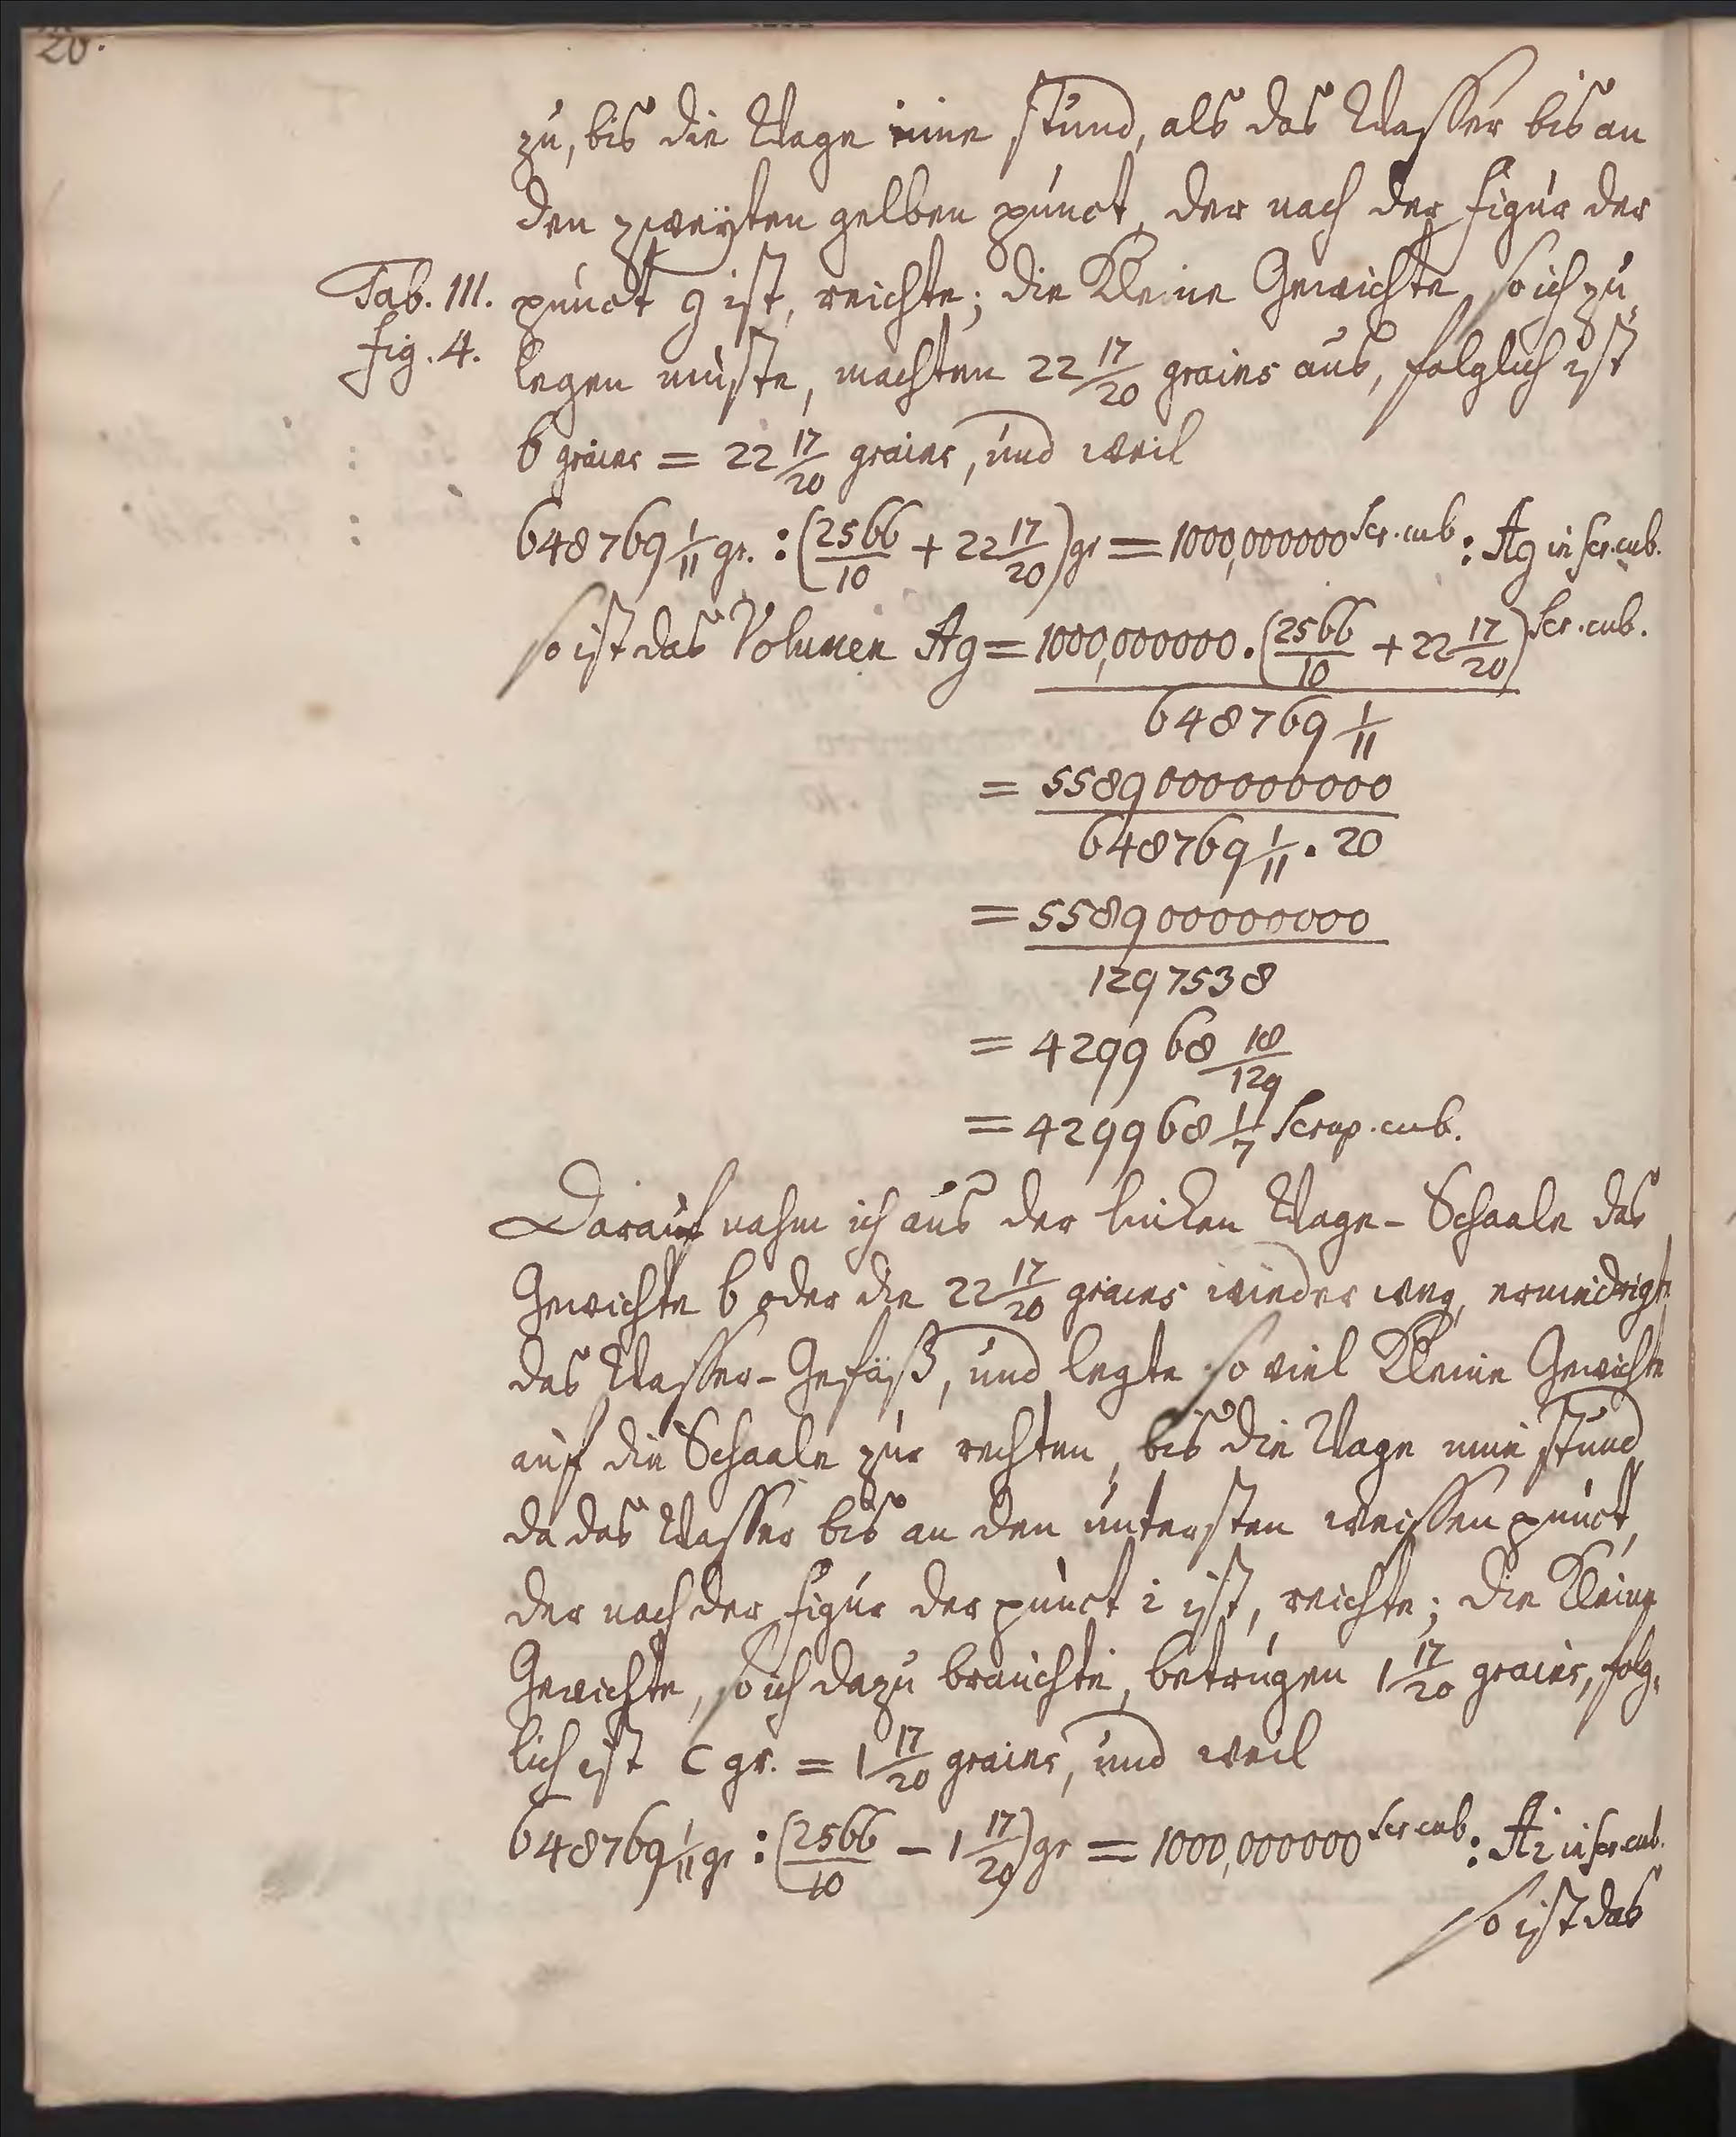 20.
zu, bis die Wage inne stund, als das Wasser bis an
den zweÿten gelben punct, der nach der Figur der
Tab. III. punct g ist, reichte; die kleine Gewichte, so ich zu
Fig. 4. legen muste, machten 22 17/20 grains aus, folglich ist
b grains = 22 17/20 grains, und weil
648769 1/11 gr. : (2566/10 + 22 17/20) gr = 1000,000000 Scr. cub : Ag in scr. cub.
so ist das Volumen Ag = 1000,000000 . (2566/10 + 22 17/20) Scr. cub.
648769 1/11
= 5589000000000
648769 1/11 . 20
= 558900000000
1297538
= 429968 18/129
= 429968 1/7 Scrup. cub.
Darauf nahm ich aus der lincken Wage-Schaale das
Gewichte b oder die 22 17/20 grains wieder weg, erniedrigte
das Wasser-Gefäß, und legte so viel kleine Gewichte
auf die Schaale zur rechten, bis die Wage inne stund,
da das Wasser bis an den untersten weissen punct,
der nach der Figur der punct i ist, reichte; die kleine
Gewichte, so ich dazu brauchte, betrugen 1 17/20 grains, folg-
lich ist c gr. = 1 17/20 grains, und weil
648769 1/11 gr : (2566/10 - 1 17/20) gr = 1000,000000 Scr cub : Ai in scr. cub.
so ist das